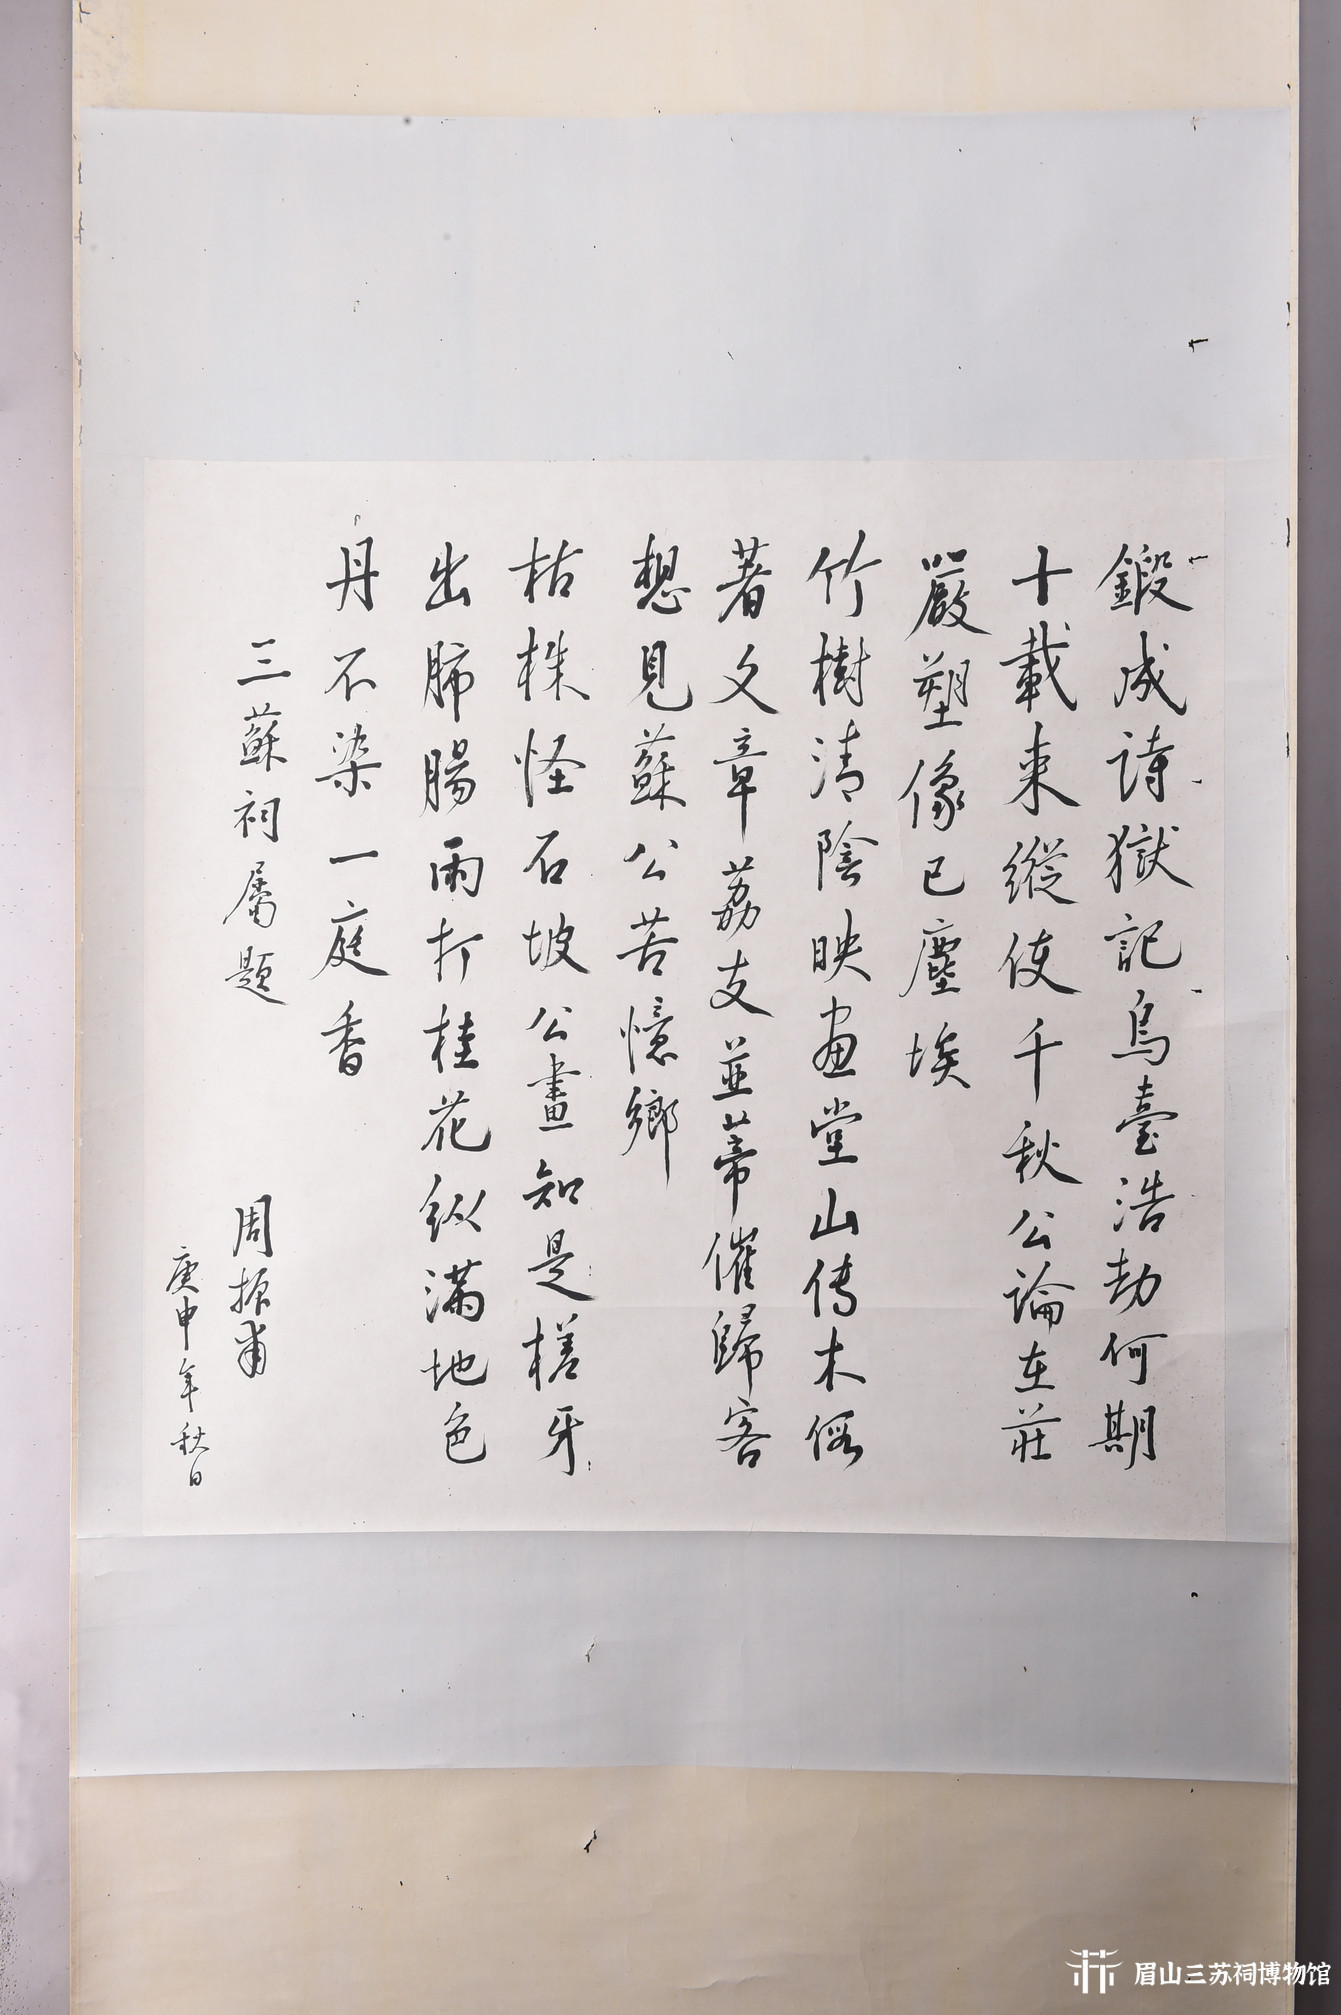 鍛成詩獄記烏臺浩劫何期
十載来縱使千秋公論在莊
嚴塑像已塵埃
竹樹清陰映画堂山傳木假
著文章荔支並蒂催歸客
想見蘇公苦憶鄉
枯株怪石坡公畫知是槎牙
出肺腸雨打桂花紅滿地色
丹不染一庭香
三蘇祠屬題
周振甫
庚申年秋日
眉山三苏祠博物馆